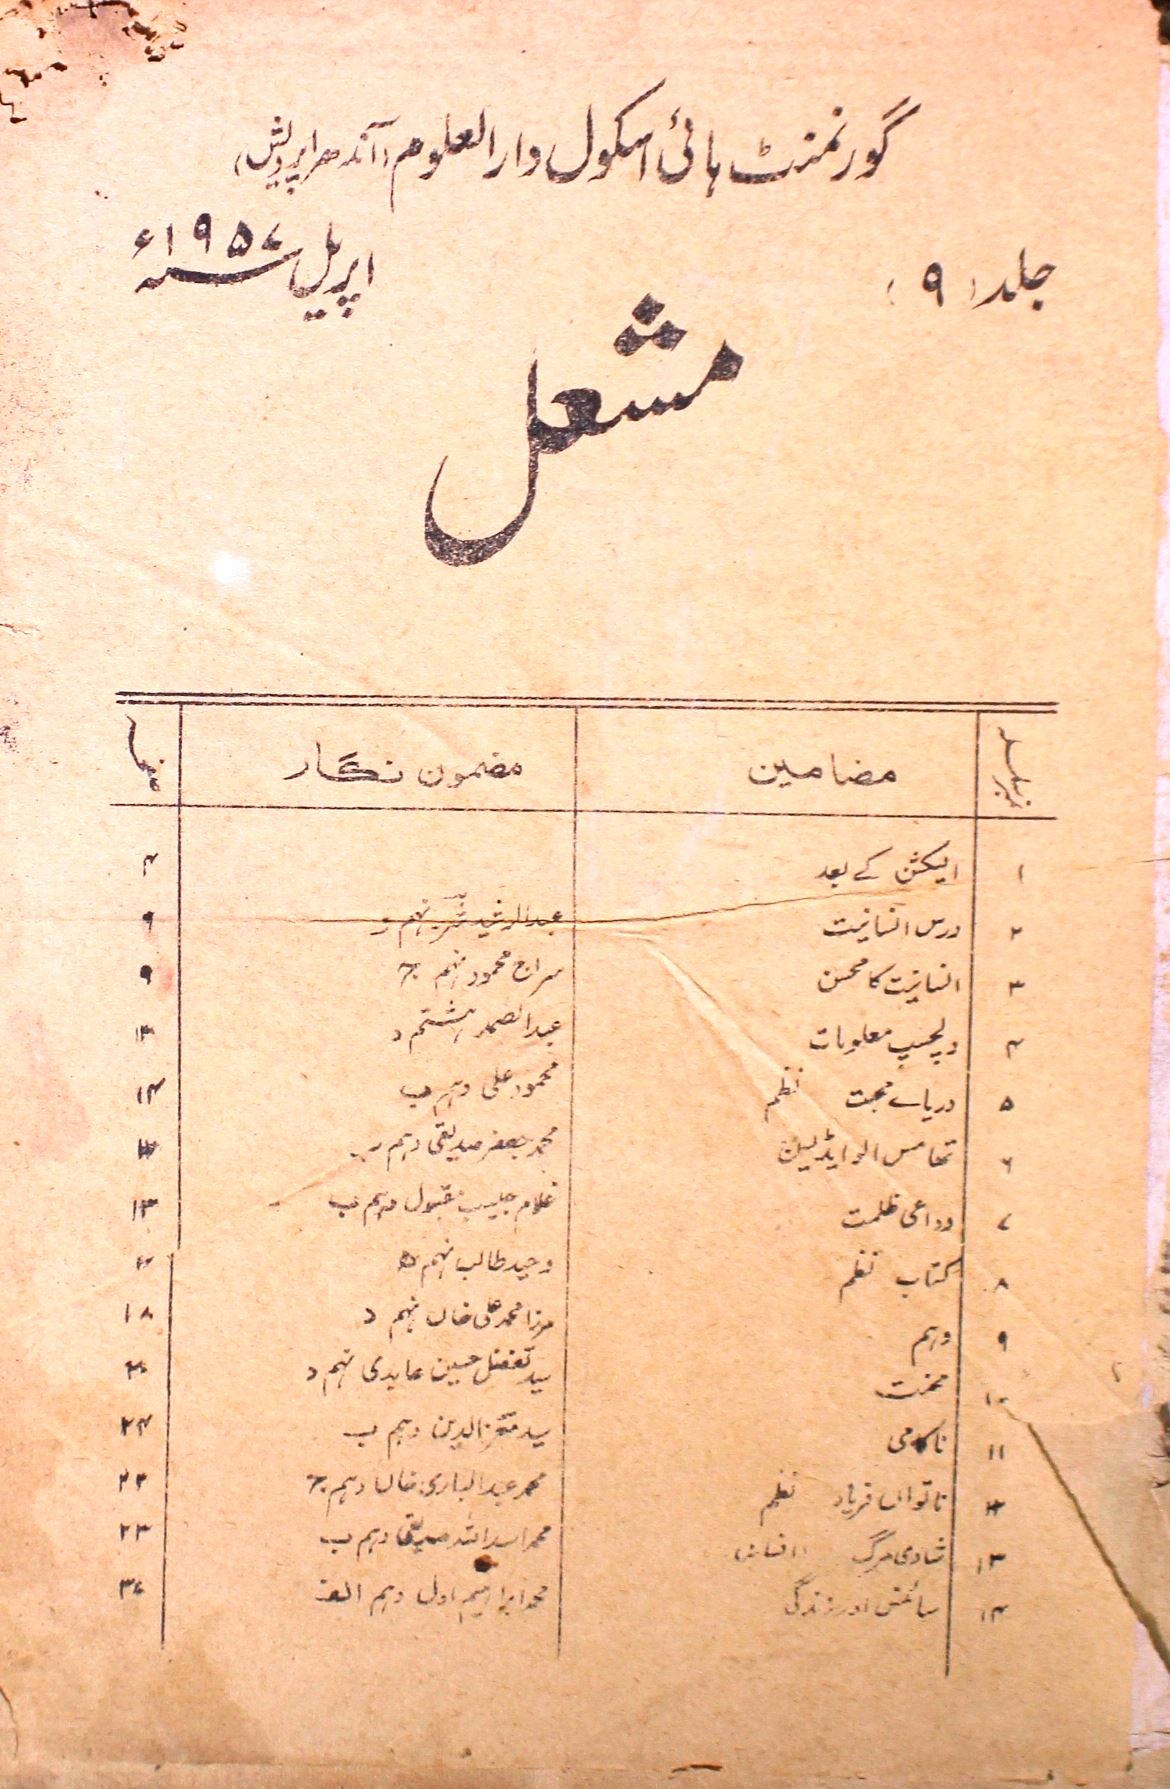 گورنمنٹ ہائی اسکول دارالعلوم (آندھراپردیش)
جلد (۹) اپریل ۱۹۵۷ء
مشعل
نمبر سلسلہ مضامین مضمون نگار صفحہ
۱ الیکشن کے بعد ۴
۲ درس انسانیت عبدالرشید نہم ۶
۳ انسانیت کا محسن سراج محمود نہم ج ۹
۴ دلچسپ معلومات عبدالصمد ہشتم د
۵ دریائے محبت نظم محمود علی دہم ب ۱۴
۶ تھامس الوا ایڈیسن محمد جعفر صدیقی دہم ب
۷ وداعی ظلمت غلام حبیب مقبول دہم ب
۸ کتاب نظم وحید طالب نہم
۹ وہم مرزا محمد علی خاں نہم د ۱۸
۱۰ محنت سید تفضل حسین عابدی نہم د
۱۱ ناکامی سید معز الدین دہم ب ۲۴
۱۲ ناتواں فریاد نظم محمد عبدالباری خاں دہم ج ۲۲
۱۳ شادی مرگ (افسانہ) محمد اسداللہ صدیقی دہم ب ۲۳
۱۴ سائنس اور زندگی محمد ابراہیم اول دہم الف